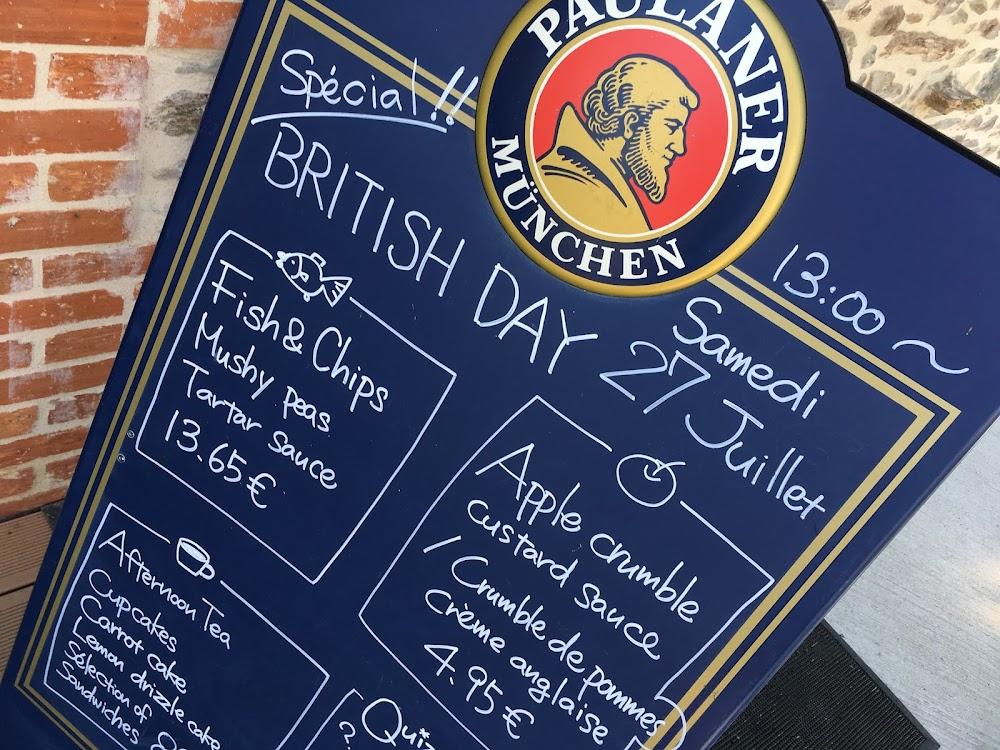 PAULANER
MÜNCHEN
Spécial!!
BRITISH DAY
13:00 ~
Samedi
27 Juillet
Fish & Chips
Mushy peas
Tartar sauce
13.65€
Apple crumble
custard sauce
/ Crumble de pommes
Crème anglaise
4.95€
Afternoon Tea
Cupcakes
Carrot cake
Lemon drizzle cake
Sélection of
Sandwiches